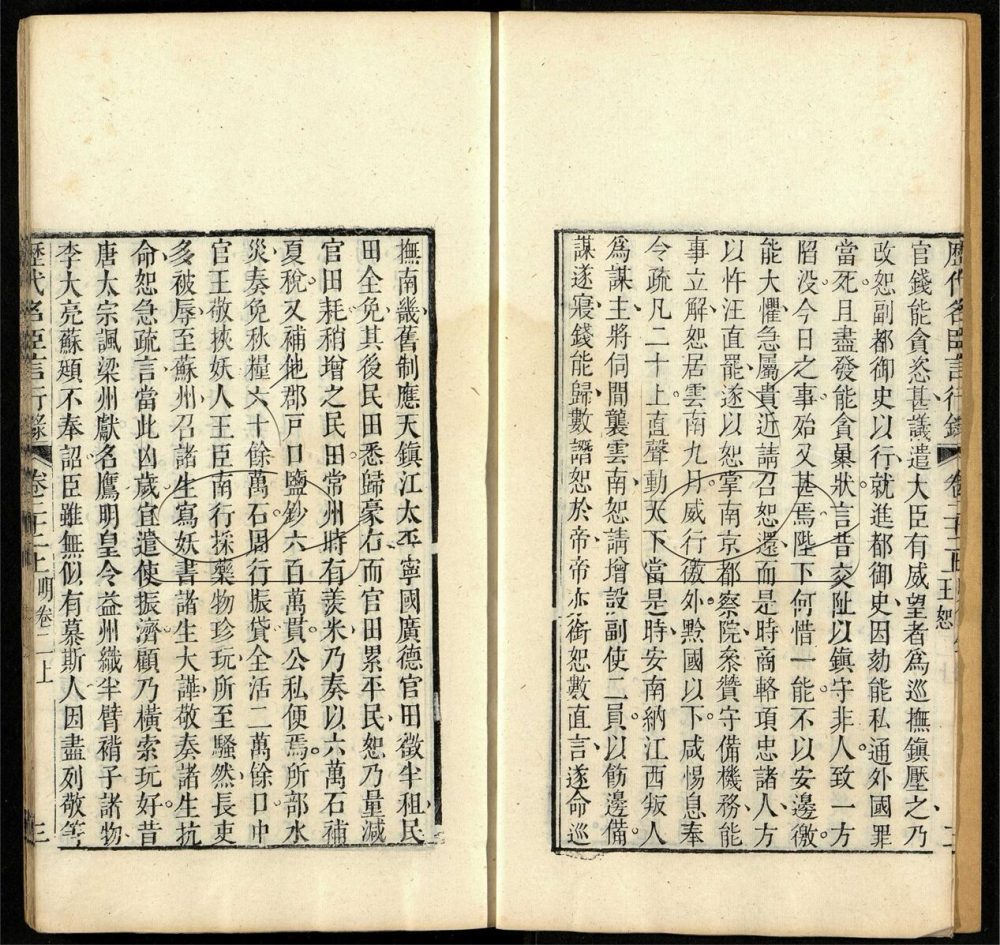 歷代名臣言行錄 卷二十二上 王恕
官錢能貪恣甚議遣大臣有威望者爲巡撫鎭壓之乃
改恕副都御史以行就進都御史因劾能私通外國罪
當死且盡發能貪暴狀言昔交阯以鎭守非人致一方
陷没今日之事殆又甚焉陛下何惜一能不以安邊徼
能大懼急屬貴近請召恕還而是時商輅項忠諸人方
以忤汪直罷遂以恕掌南京都察院叅贊守備機務能
事立解恕居雲南九月威行徼外黔國以下咸惕息奉
令疏凡二十上直聲動天下當是時安南納江西叛人
爲謀主將伺間襲雲南恕請增設副使二員以飭邊備
謀遂寢錢能歸數譖恕於帝帝亦銜恕數直言遂命巡
撫南畿舊制應天鎭江太平寧國廣德官田徵半租民
田全免其後民田悉歸豪右而官田累平民恕乃量減
官田耗稍增之民田常州時有羨米乃奏以六萬石補
夏稅又補他郡戸口鹽鈔六百萬貫公私便焉所部水
災奏免秋糧六十餘萬石周行振貸全活二萬餘口中
官王敬挾妖人王臣南行採藥物珍玩所至騷然長吏
多被辱至蘇州召諸生寫妖書諸生大譁敬奏諸生抗
命恕急疏言當此凶歲宜遣使振濟顧乃橫索玩好昔
唐太宗諷梁州獻名鷹明皇令益州織半臂褙子諸物
李大亮蘇頲不奉詔臣雖無似有慕斯人因盡列敬等
歷代名臣言行錄 卷二十二上 明卷二上 三